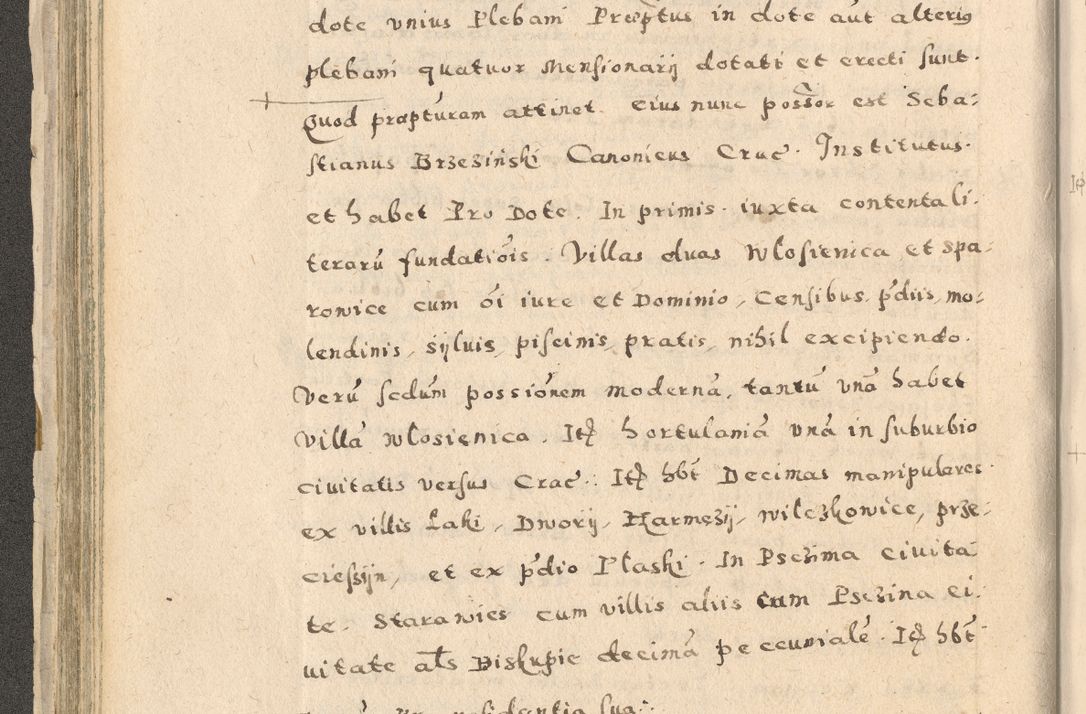 dote vnius Plebani Præptus in dote aut alterius
plebani quatuor Mensionarij dotati et erecti sunt.
Quod præpturam attinet. eius nunc possor est Seba:
stianus Brzeziński Canonicus Crac. Institutus.
et habet Pro Dote. In primis iuxta contenta li:
terarū fundatiōis. Villas duas Wlosienica et Spa:
rowice cum oī iure et Dominio, Censibus, p̄diis, mo:
lendinis, sÿluis, piscinis, pratis, nihil excipiendo.
Verū scdūm possiōnem modernā, tantū vnā habet
villā Wlosienica. Itē hortulaniā vnā in suburbio
ciuitatis versus Crac. Itē hb̄t Decimas manipulares
ex villis Łaki, Dworÿ, Harmęzÿ, wilczkowice, prze:
ciessÿn, et ex p̄dio Płaski. In Psczina ciuita
te. Starawies cum villis aliis cum Psczina ci:
uitate als Biskupie decimā peccunialē. Itē hb̄t
residentia sua.